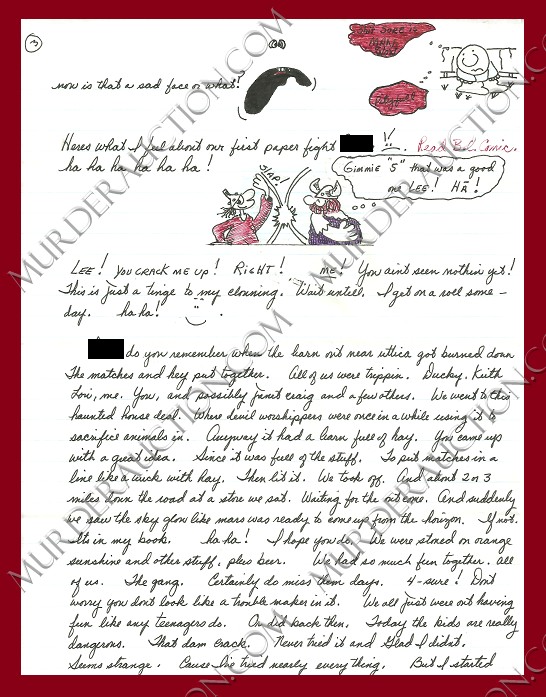 3
now is that a sad face or what!
Heres what I feel about our first paper fight
Read B.C. Comic.
ha ha ha ha ha ha!
SLAP!
Gimmie "5" that was a good
one LEE! HA!
LEE! YOU CRACK ME UP! RIGHT! ME! You aint seen nothin yet!
This is just a tinge to my clowning. Wait untill I get on a roll some-
day. ha ha!
do you remember when the barn out near uthia got burned down
The matches and hey put together. All of us were trippin. Ducky, Keith
Low, me, You, and possibly janit craig and a few others. We went to this
haunted house deal. Where devil worshippers were once in a while using it to
sacrifice animals in. Anyway it had a barn full of hay. You came up
with a great idea. Since it was full of the stuff. To put matches in a
line like a wick with hay. Then lit it. We took off. And about 2 or 3
miles down the road at a store we sat. Waiting for the out come. And suddenly
we saw the sky glow like mars was ready to come up from the horizon. If not.
Its in my book. ha ha! I hope you do. We were stoned on orange
sunshine and other stuff, plus beer. We had so much fun together. all
of us. The gang. Certainly do miss them days. 4-sure! Dont
worry you dont look like a trouble maker in it. We all just were out having
fun like any teenagers do. Or did back then. Today the kids are really
dangerous. That dam crack. Never tried it and Glad I didnt.
Seems strange. Cause I've tried nearly everything. But I started
MURDERAUCTION.COM